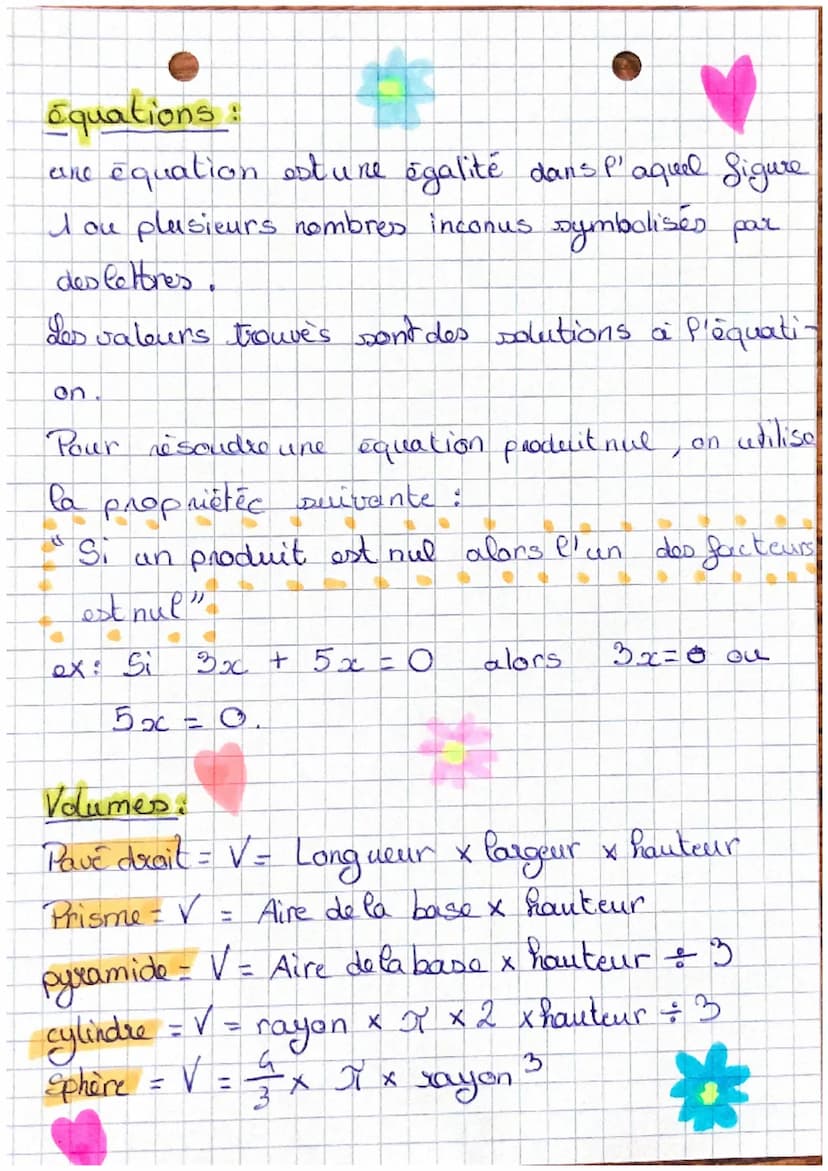 équations :
une équation est une égalité dans l'aquel figure
1 ou plusieurs nombres inconus symbolisés par
des lettres.
Les valeurs trouvès sont des solutions à l'équati-
on.
Pour résoudre une équation produit nul, on utilise
la propriétéc suivante :
"Si un produit est nul alors l'un des facteurs
est nul"
ex: Si 3x + 5x = 0 alors 3x=0 ou
5x = 0.
Volumes:
Pavé droit = V= Longueur x largeur x hauteur
Prisme = V = Aire de la base x hauteur
pyramide = V = Aire de la base x hauteur ÷ 3
cylindre = V = rayon x π x 2 x hauteur ÷ 3
Sphère = V = 4/3 x π x rayon³